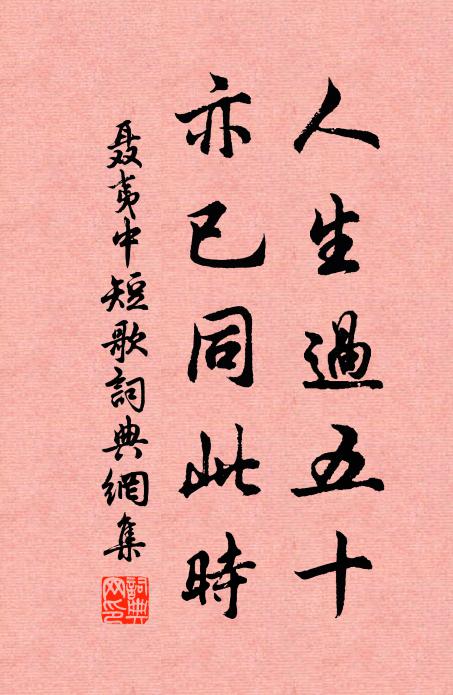 人生過五十
亦已同此時
聶夷中短歌詞典網集
詞典網印